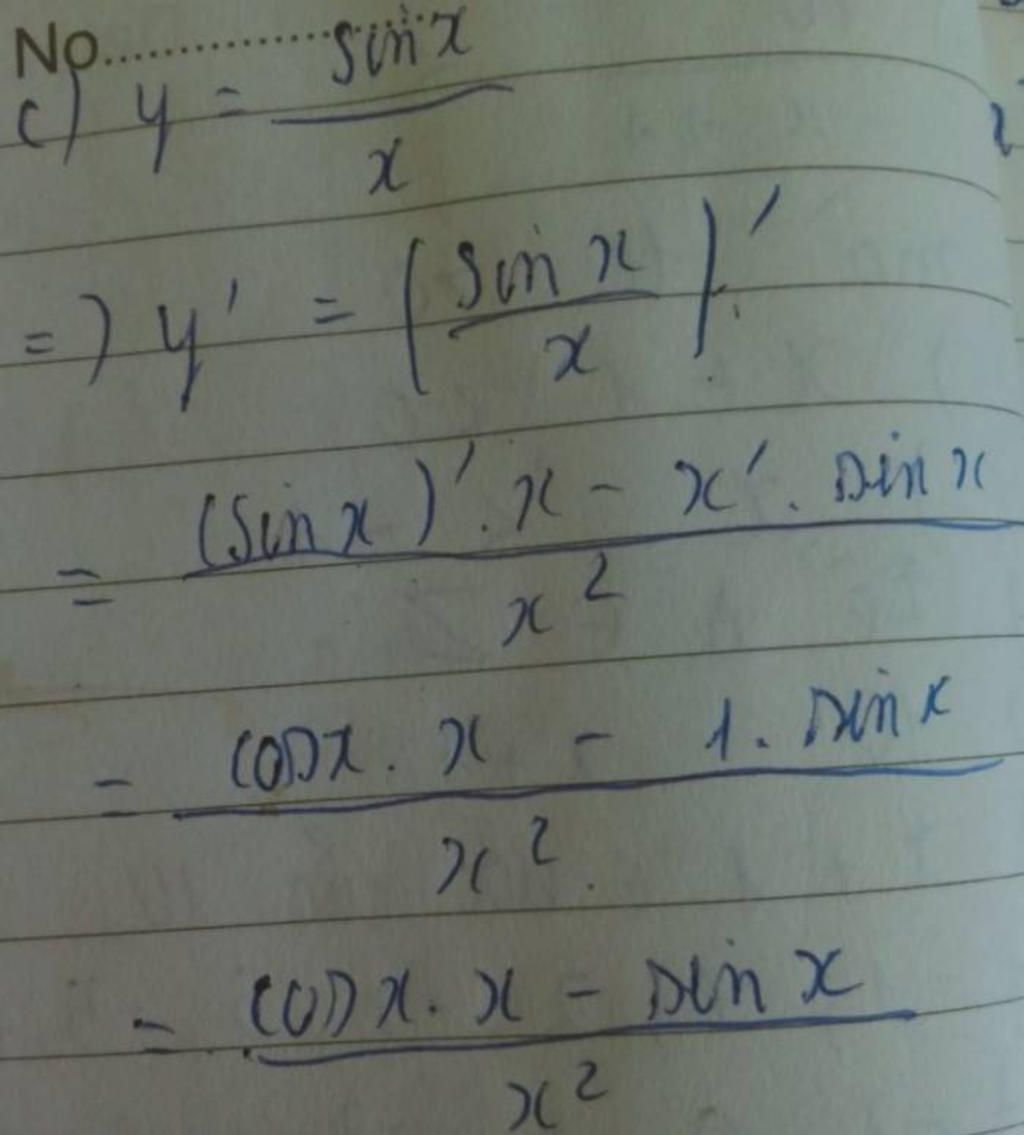 No..................
c) y = sin x / x
=) y' = (sin x / x)'
= (sin x)' . x - x' . sin x / x²
= cos x . x - 1 . sin x / x²
= cos x . x - sin x / x²